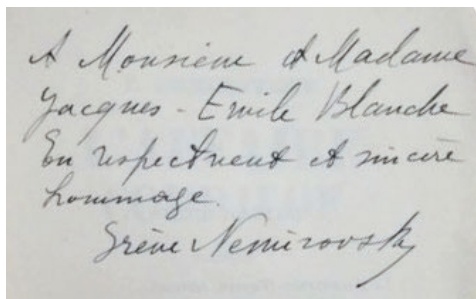 A Monsieur & Madame
Jacques-Emile Blanche
En respectueux et sincère
hommage.
Irène Nemirovsky